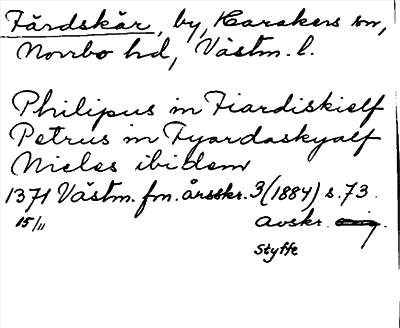 Färdskär, by, Harakers sn,
Norrbo hd, Västm. l.
Philipus in Fiardiskielf
Petrus in Fyardaskyalf
Nicles ibidem
1371 Västm. fm. årsskr. 3 (1884) s. 73.
15/11 Avskr.
Styffe